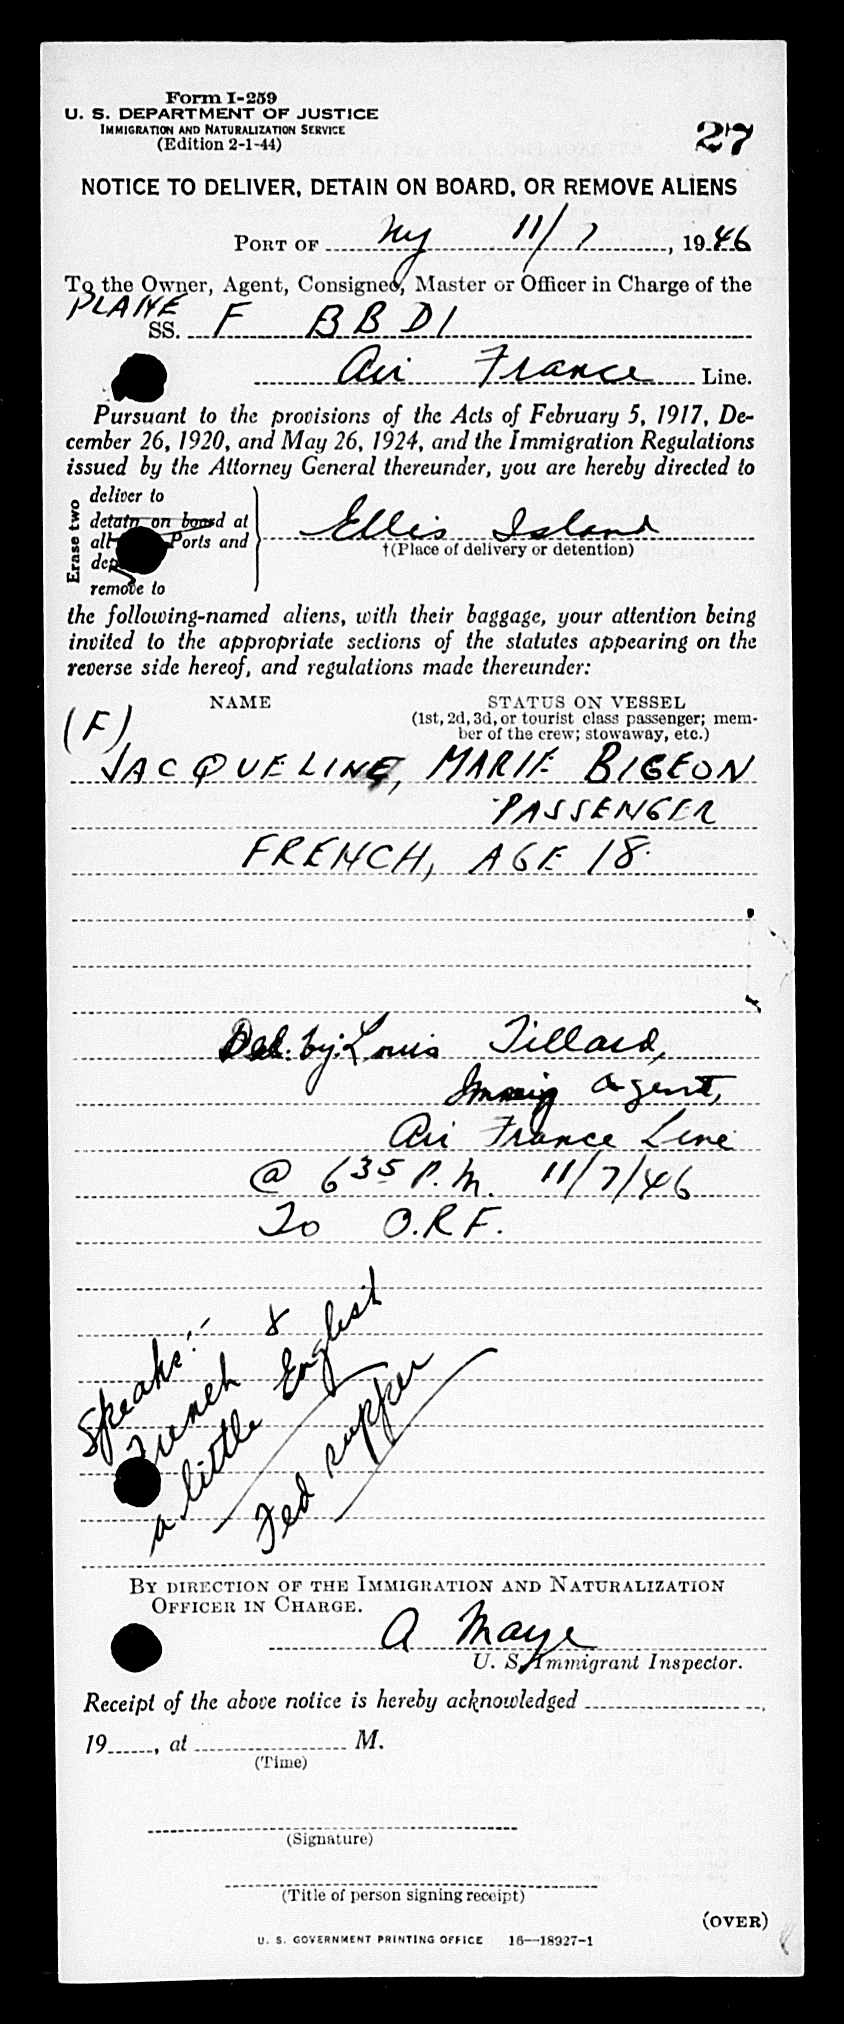 Form I-259
U. S. DEPARTMENT OF JUSTICE
IMMIGRATION AND NATURALIZATION SERVICE
(Edition 2-1-44)
27
NOTICE TO DELIVER, DETAIN ON BOARD, OR REMOVE ALIENS
PORT OF NY 11/7, 1946
To the Owner, Agent, Consignee, Master or Officer in Charge of the
PLANE
SS. F BBDI
Air France Line.
Pursuant to the provisions of the Acts of February 5, 1917, De-
cember 26, 1920, and May 26, 1924, and the Immigration Regulations
issued by the Attorney General thereunder, you are hereby directed to
Erase two
deliver to
detain on board at
all Ports and
remove to
Ellis Island
†(Place of delivery or detention)
the following-named aliens, with their baggage, your attention being
invited to the appropriate sections of the statutes appearing on the
reverse side hereof, and regulations made thereunder:
NAME STATUS ON VESSEL
(1st, 2d, 3d, or tourist class passenger; mem-
ber of the crew; stowaway, etc.)
(F)
JACQUELINE, MARIE BIGEON
PASSENGER
FRENCH, AGE 18.
Del. by: Louis Tillard,
Immig Agent,
Air France Line
@ 635 P.M. 11/7/46
To O.R.F.
Speaks:-
French &
a little English
Fed supper
BY DIRECTION OF THE IMMIGRATION AND NATURALIZATION
OFFICER IN CHARGE.
A Maye
U. S. Immigrant Inspector.
Receipt of the above notice is hereby acknowledged ,
19 , at M.
(Time)
(Signature)
(Title of person signing receipt)
(OVER)
U. S. GOVERNMENT PRINTING OFFICE 16—18927-1